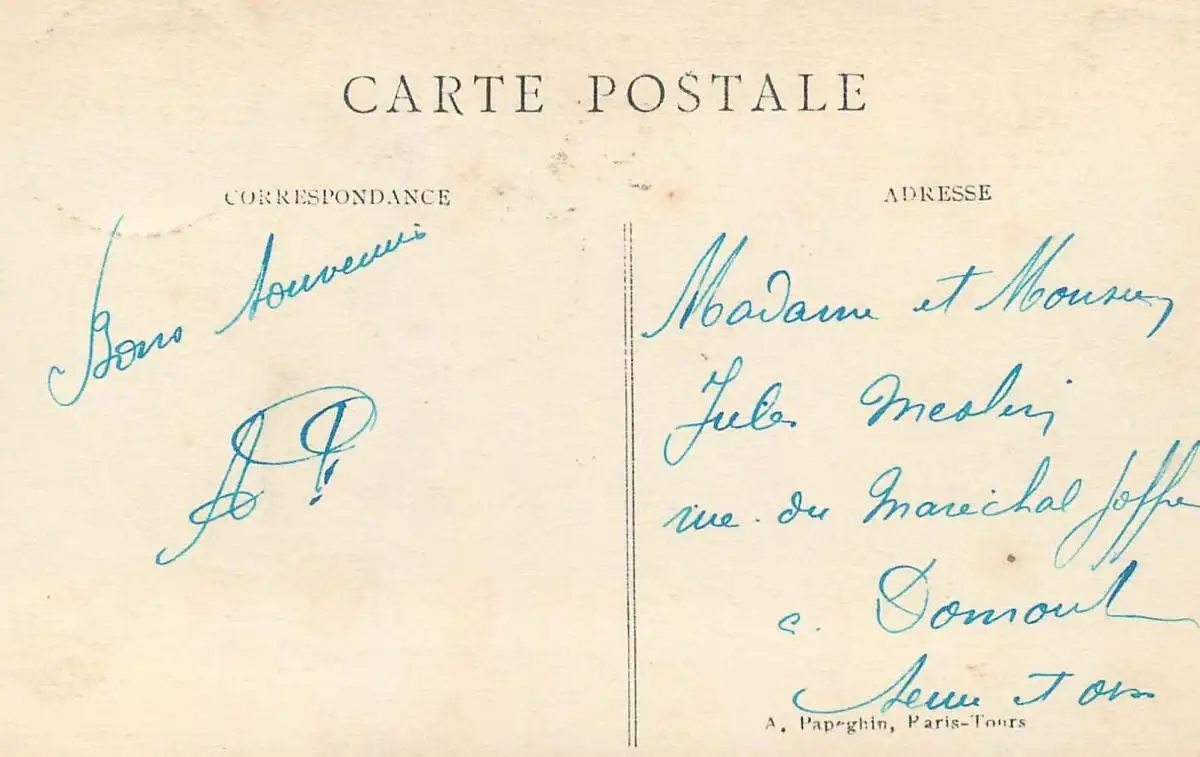 CARTE POSTALE
CORRESPONDANCE
Bons souvenirs
AP
ADRESSE
Madame et Monsieur
Jules Meslin
rue du Maréchal Joffre
à Domont
Seine et Oise
A. Papeghin, Paris-Tours